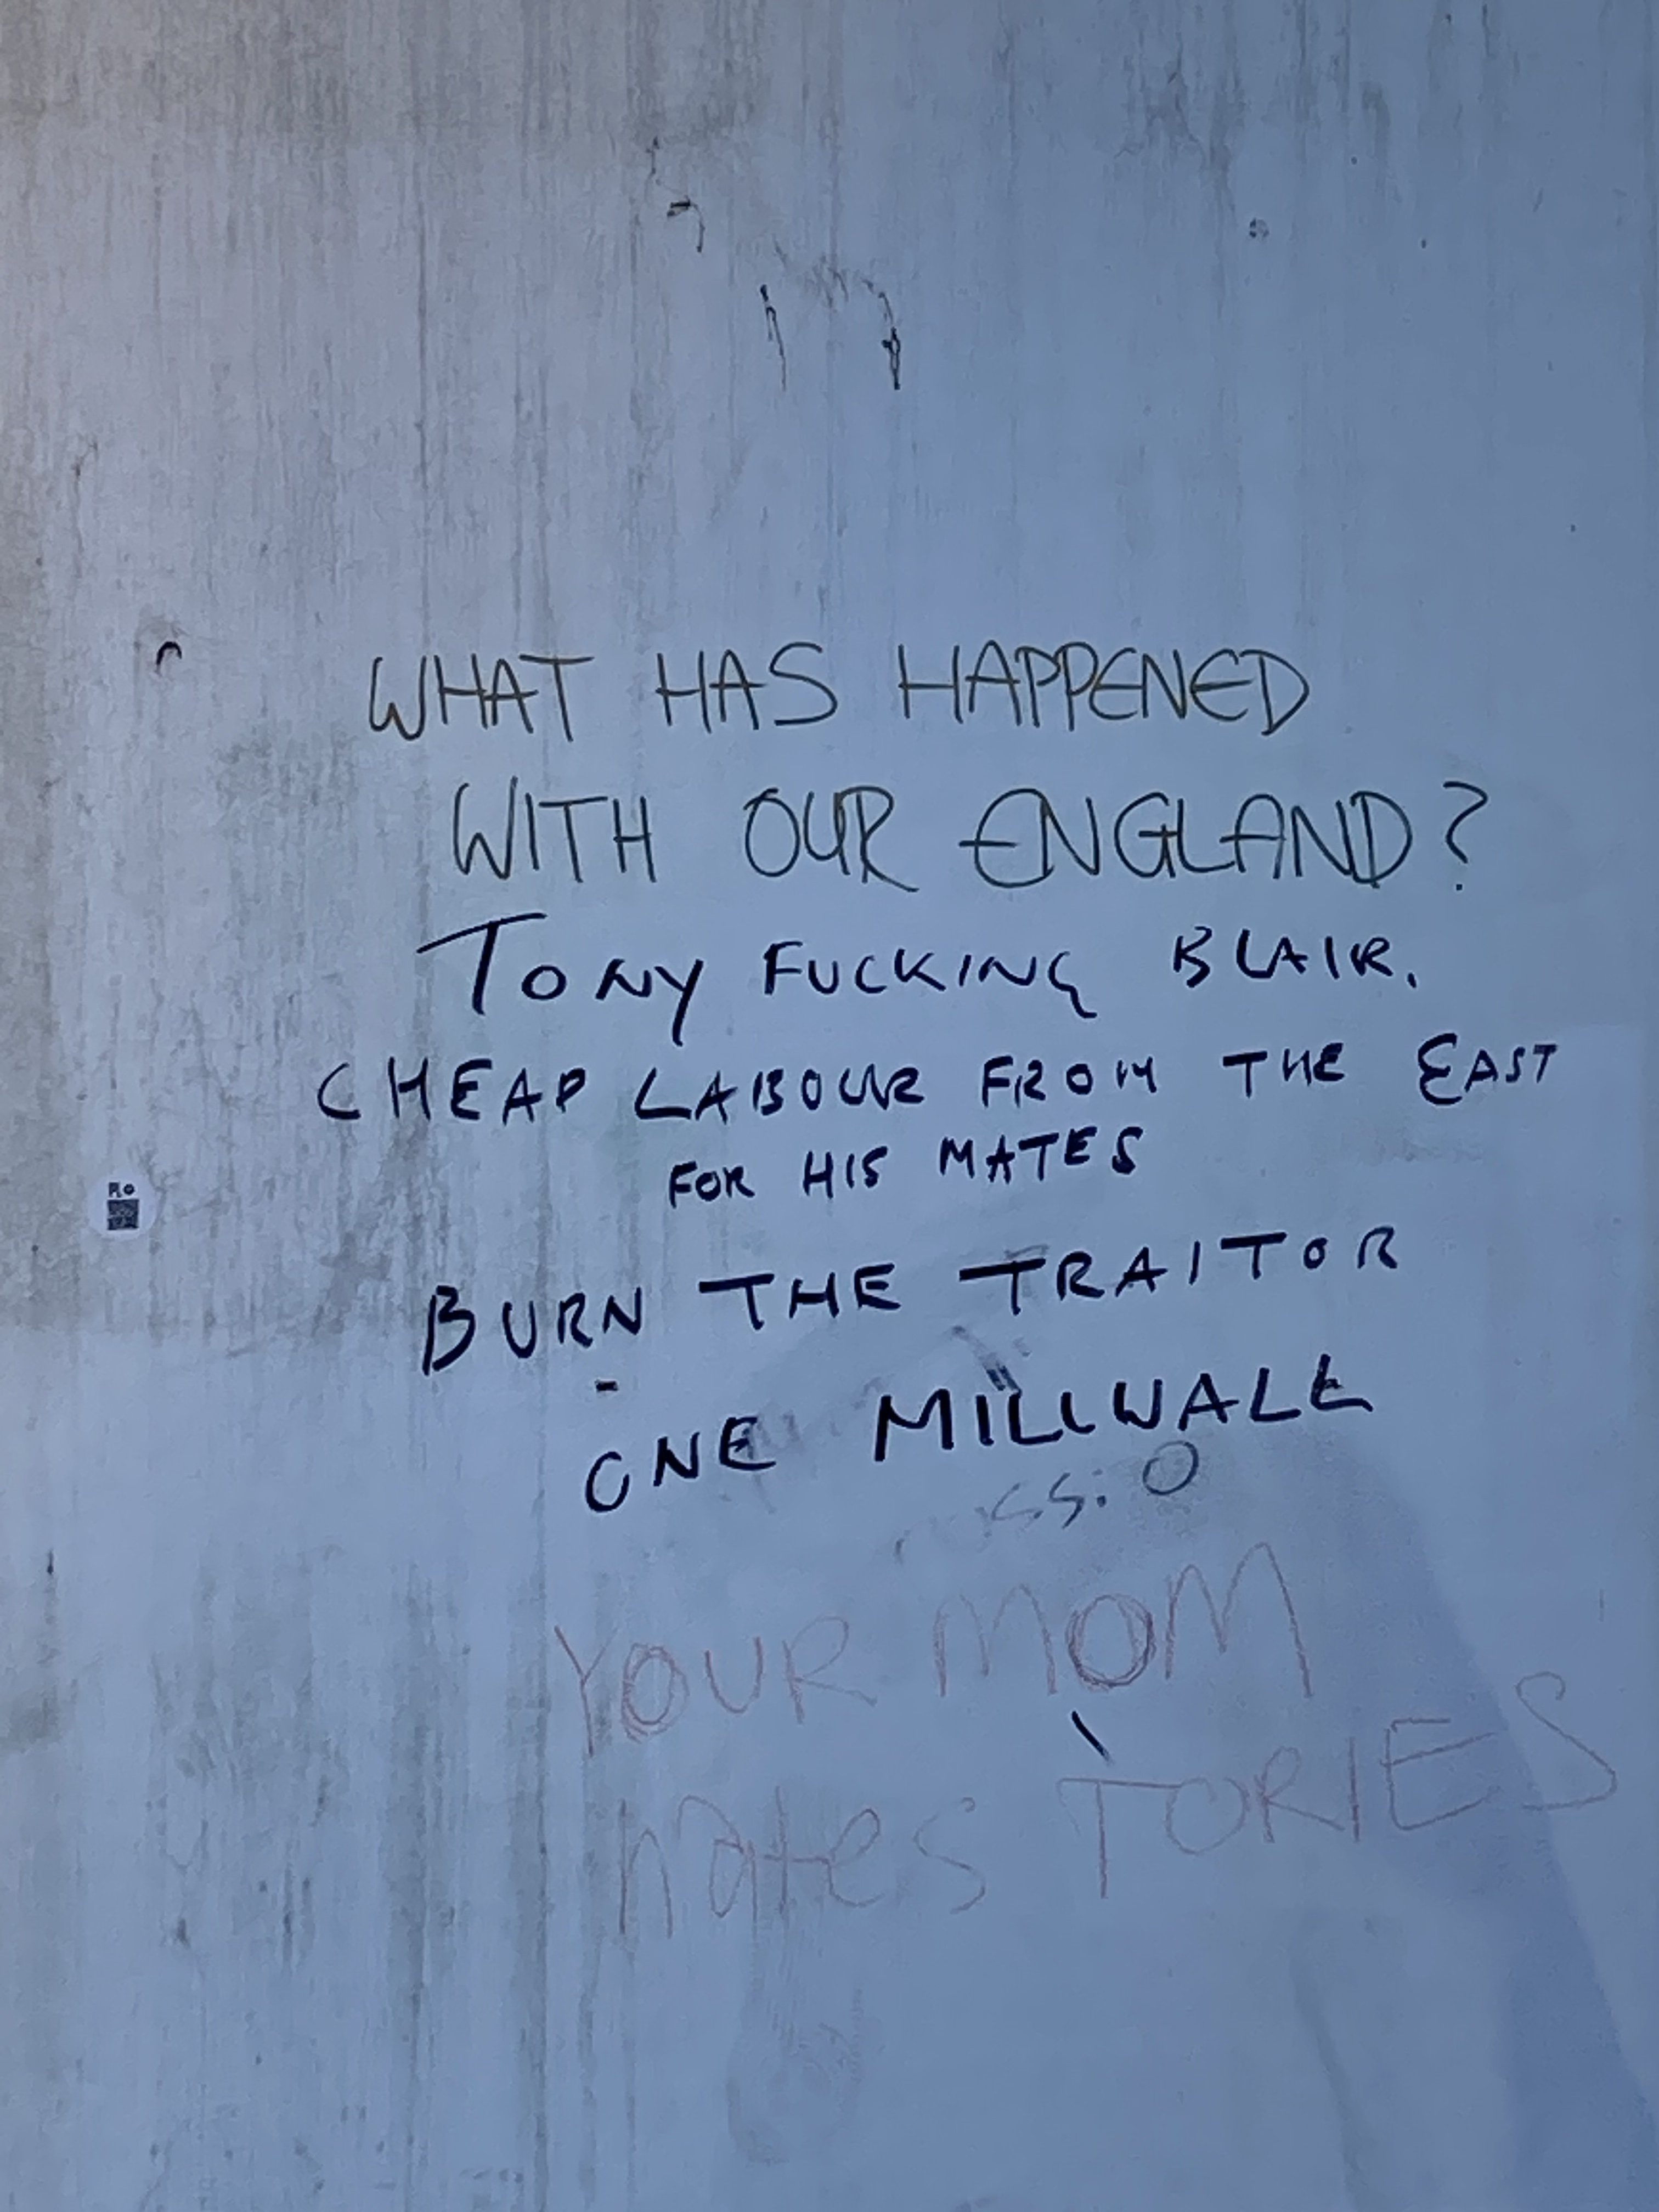 WHAT HAS HAPPENED
WITH OUR ENGLAND?
TONY FUCKING BLAIR.
CHEAP LABOUR FROM THE EAST
FOR HIS MATES
BURN THE TRAITOR
ONE MILLWALL
YOUR MOM
hates TORIES